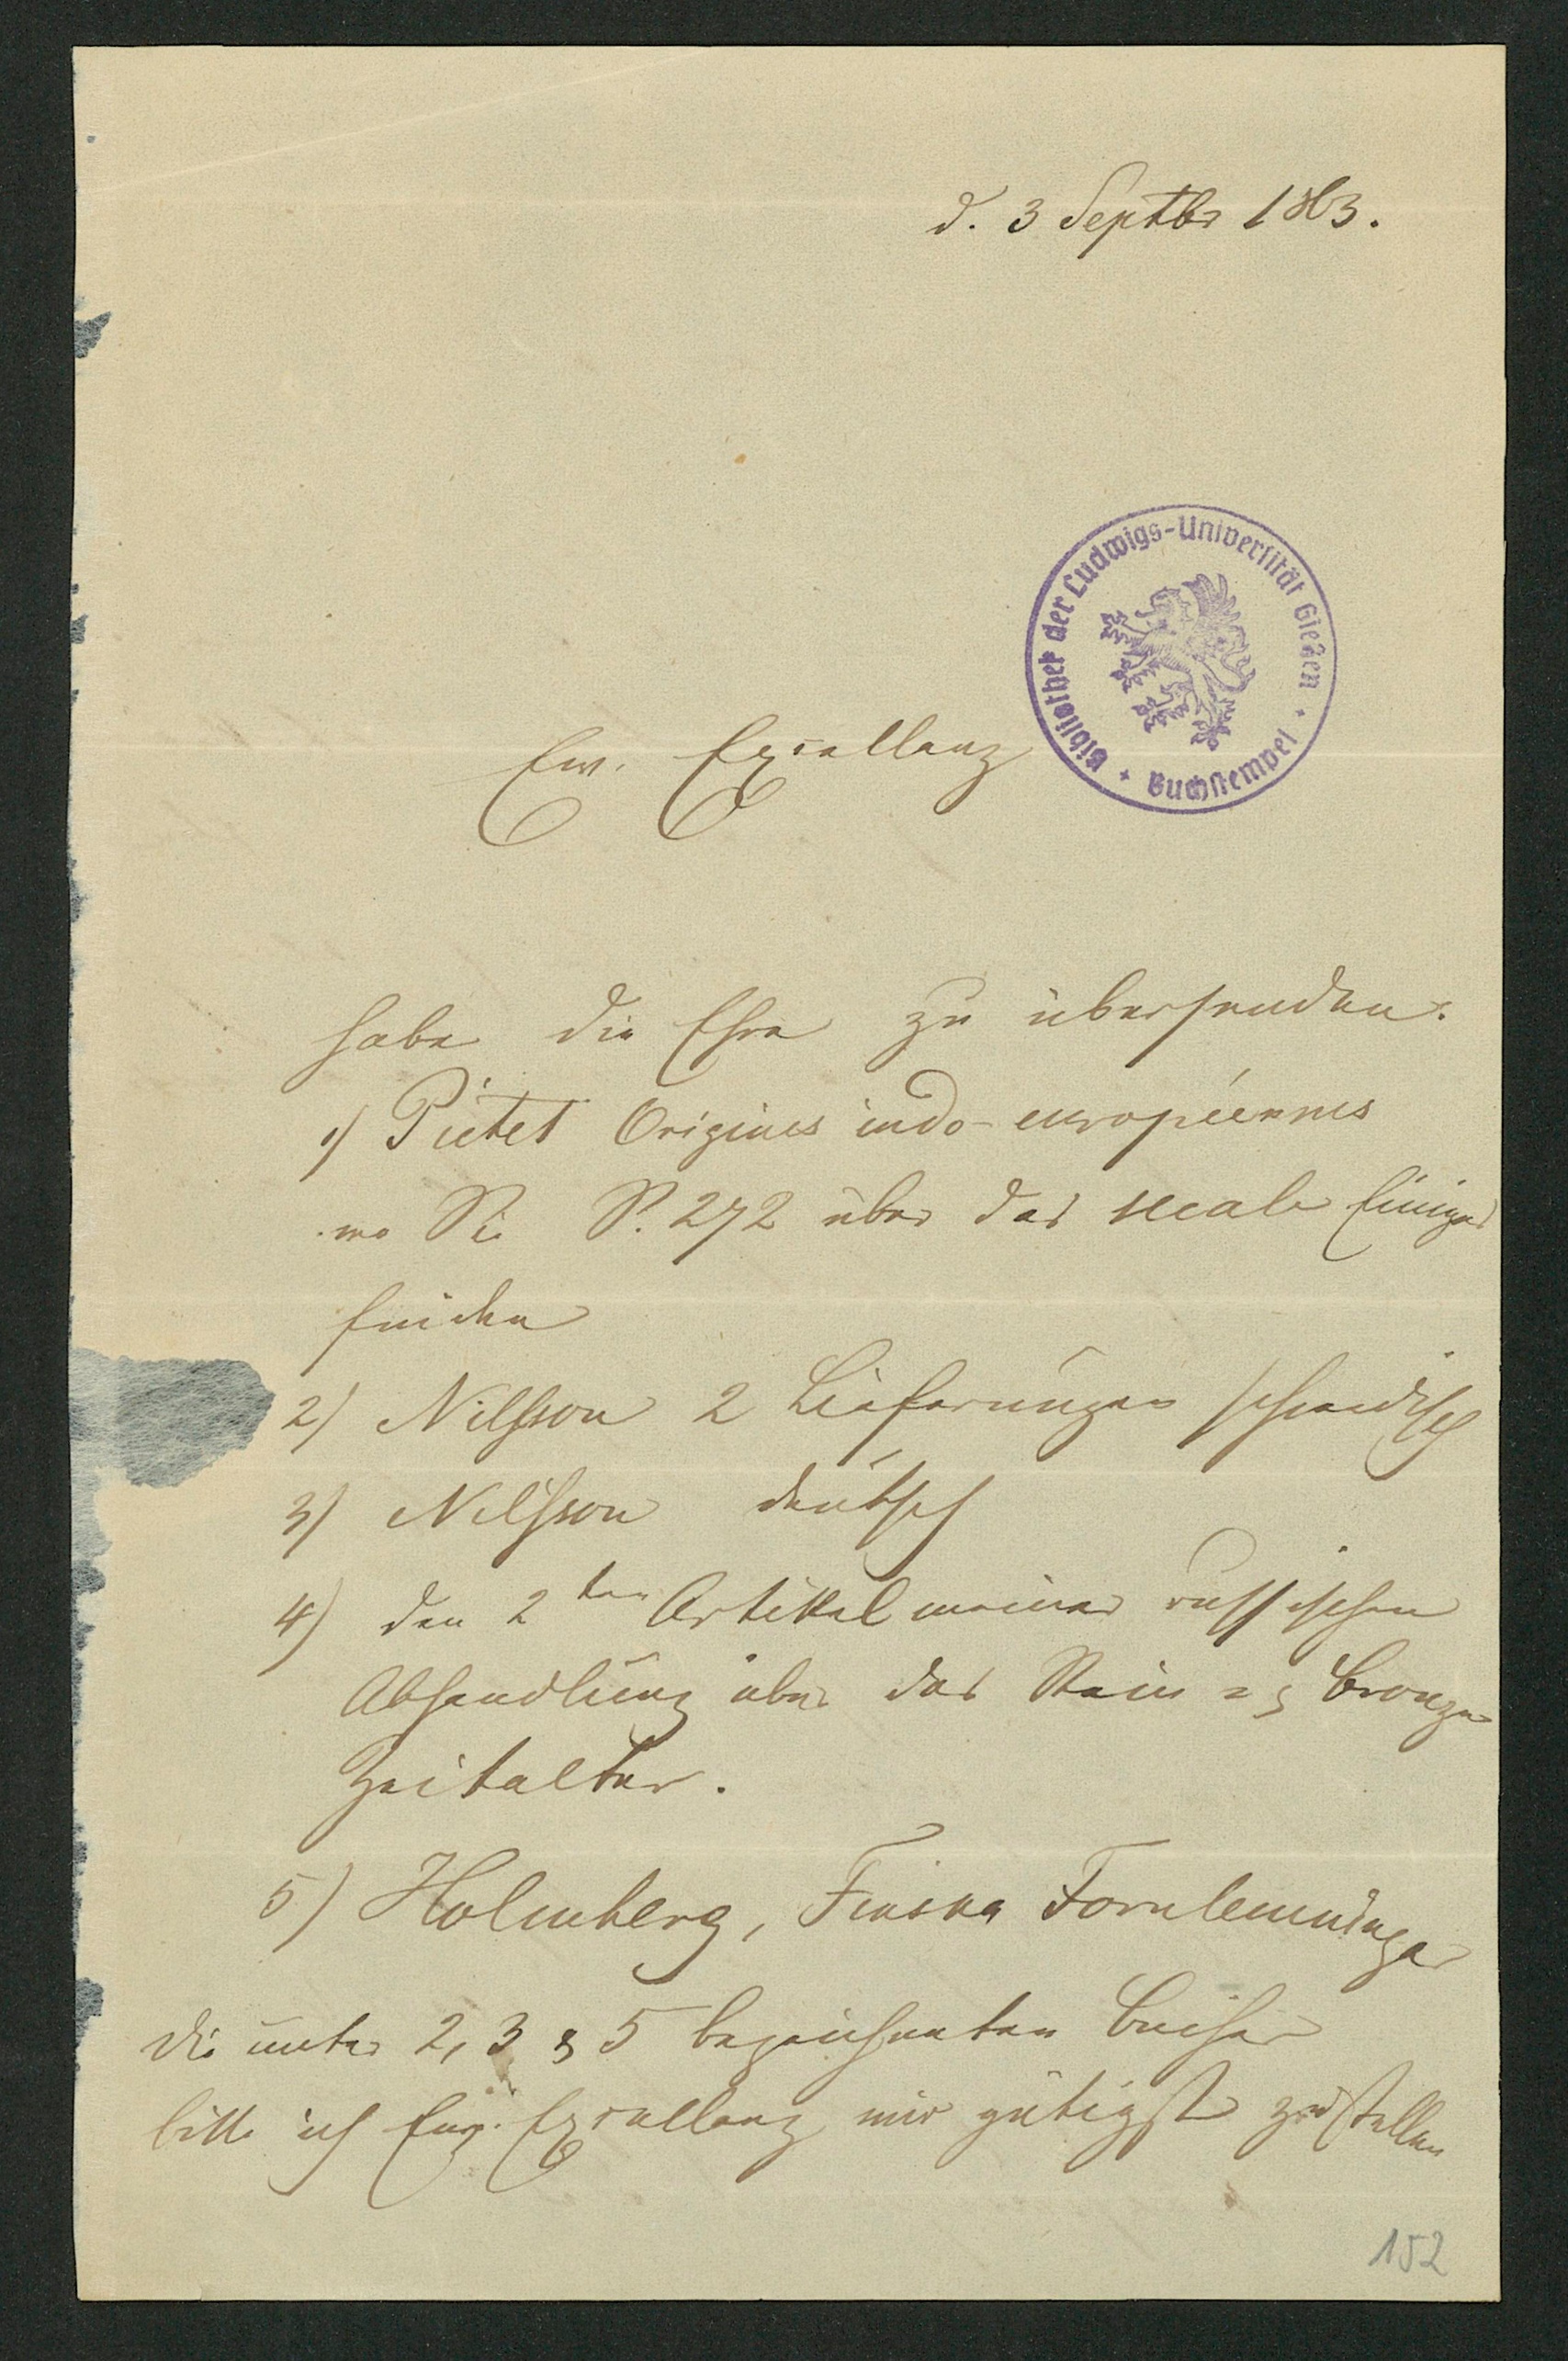 d. 3 Septbr 1863.
Bibliothek der Ludwigs-Universität Gießen
Buchstempel
Ew. Excellenz
habe die Ehre zu übersenden:
1) Pictet Origines indo-européennes
wo Sie S. 272 über das secale Einiges
finden
2) Nilsson 2 Lieferungen schwedisch
3) Nilsson deutsch
4) den 2ten Artikel meiner russischen
Abhandlung über das Stein= & Bronze
Zeitalter.
5) Holmberg, Finska Fornlemningar
die unter 2, 3 & 5 bezeichneten Bücher
bitte ich Ew. Excellenz mir gütigst zustellen
152